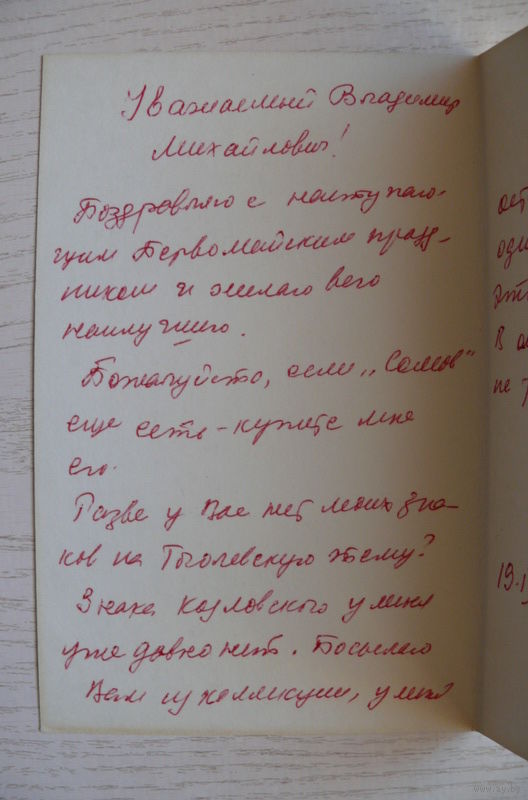 Уважаемый Владимир
Михайлович!
Поздравляю с наступаю-
щим Первомайским празд-
ником и желаю всего
наилучшего.
Пожалуйста, если „Сомов"
еще есть - купите мне
его.
Разве у Вас нет моих зна-
ков на Гоголевскую тему?
Знака Козловского у меня
уже давно нет. Посылаю
Вам из коллекции, у меня
ост
оди
Эт
В а
не
19.1